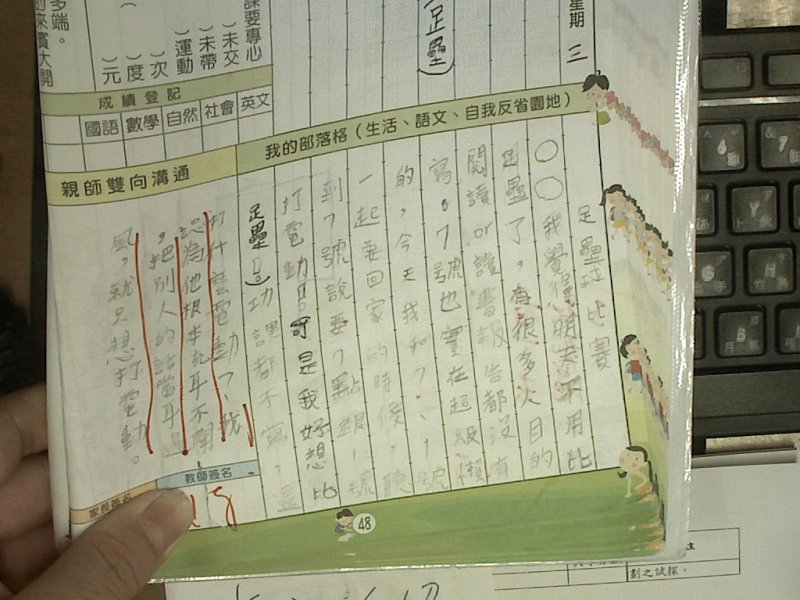 星期 三
（足壘）
課要專心
）未交
）未帶
）運動
）次
）度
）元
多端。
的來賓大開
成績登記
國語 數學 自然 社會 英文
我的部落格（生活、語文、自我反省園地）
足壘球比賽
○○我覺得明天不用比
足壘了，有很多次目的
閱讀or讀書報告都沒有
寫。7號也實在超級懶
的，今天我和7、1號
一起要回家的時候，聽
到7號說要7點跟1號
打電動!!可是我好想比
足壘!!）功課都不寫，還
打什麼電動？、我
認為他根本
，把別人的話當耳邊
風，就只想打電動。
親師雙向溝通
教師簽名
家長簽名
48
劃之試探。